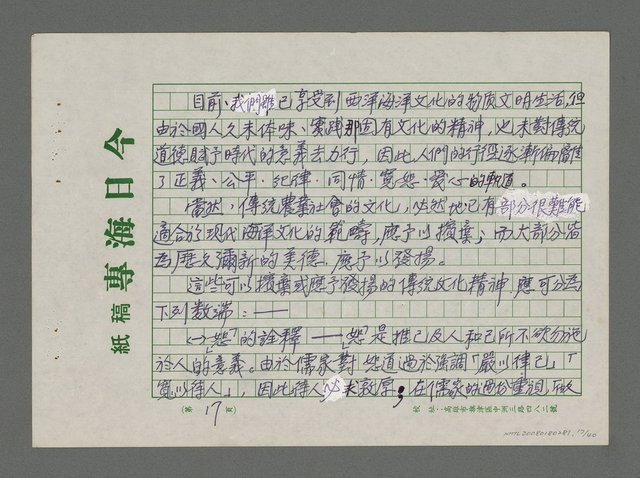 目前、我們雖已享受到西洋海洋文化的物质文明生活，但
由於國人久未体味、實踐那固有文化的精神，也未對傳統
道德賦予時代的意義去力行，因此，人們的行徑逐漸偏離
了正義、公平、紀律、同情、寬恕、愛心的軌道。
當然、傳統農業社會的文化，必然地已有部分很難能
適合於現代海洋文化的範疇，應予以摒棄；而大部分皆
為歷久彌新的美德，應予以發揚。
這些可以摒棄或應予發揚的傳統文化精神，應可分為
下列数端：——
㈠「恕」的詮釋——「恕」是推己及人和己所不欲勿施
於人的意義。由於儒家對恕道過於強調「嚴以律己」「
寬以待人」，因此待人必求敦厚；在儒家的過份重視，
今日海專
稿紙
（第17頁）
校址：高雄市旗津區中洲三路四八二號
NMTL20080180281, 17/40